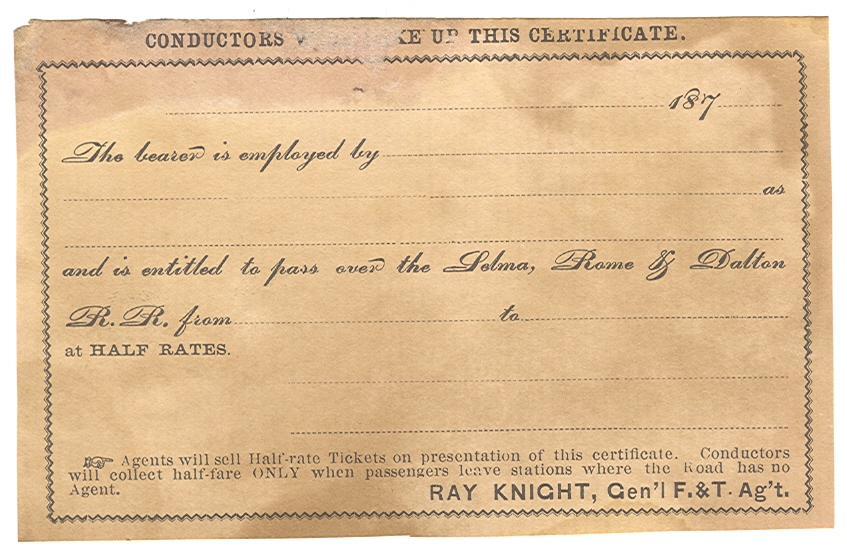 CONDUCTORS UP THIS CERTIFICATE.
187
The bearer is employed by
as
and is entitled to pass over the Selma, Rome & Dalton
R. R. from to
at HALF RATES.
☞ Agents will sell Half-rate Tickets on presentation of this certificate. Conductors
will collect half-fare ONLY when passengers leave stations where the Road has no
Agent.
RAY KNIGHT, Gen'l F. & T. Ag't.